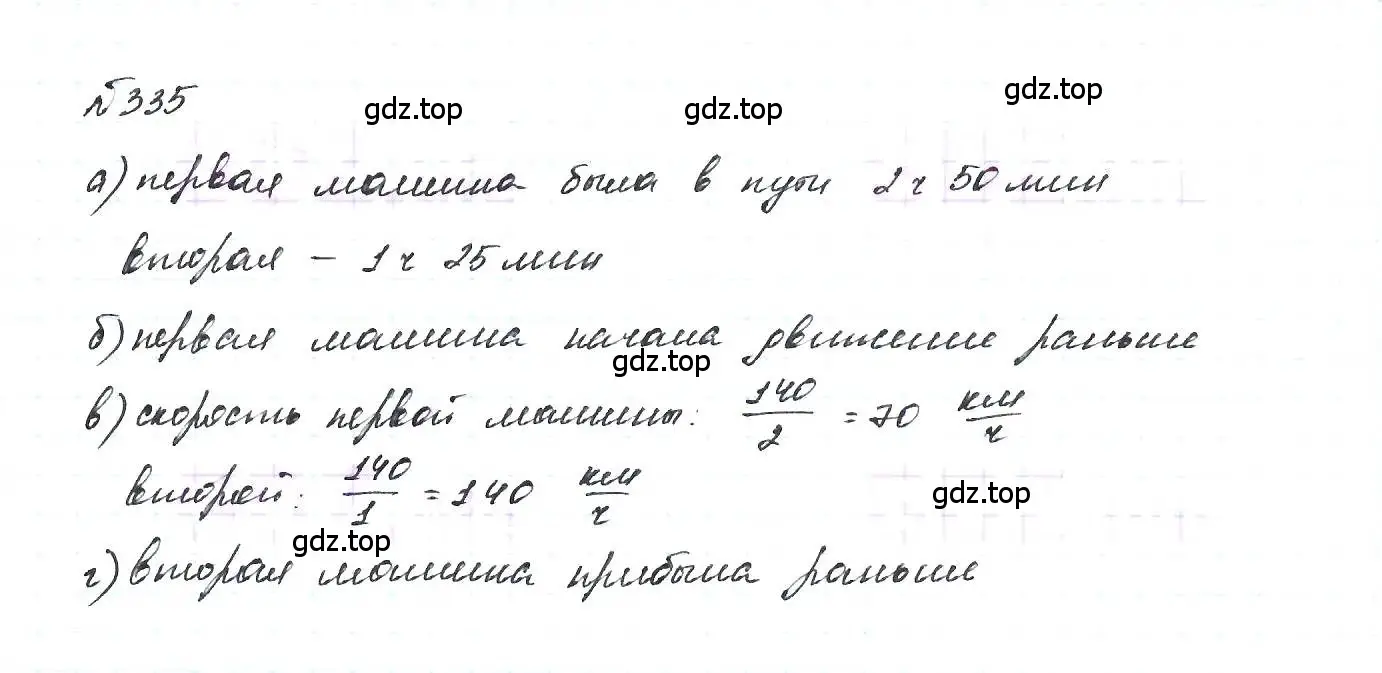 №335
gdz.top gdz.top gdz.top
а) первая машина была в пути 2 ч 50 мин
вторая – 1 ч 25 мин
б) первая машина начала движение раньше
gdz.top
в) скорость первой машины: 140/2 = 70 км/ч
второй: 140/1 = 140 км/ч
gdz.top
gdz.top
г) вторая машина прибыла раньше